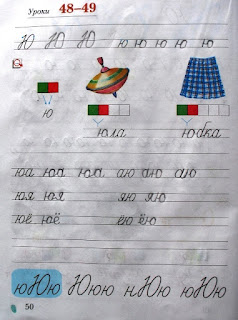 Уроки 48–49
Ю Ю Ю ю ю ю ю ю
ю
юла юбка
юа юа юа аю аю аю
юя юя яю яю
юё юё ёю ёю
юЮю Ююю нЮю юЮю
50